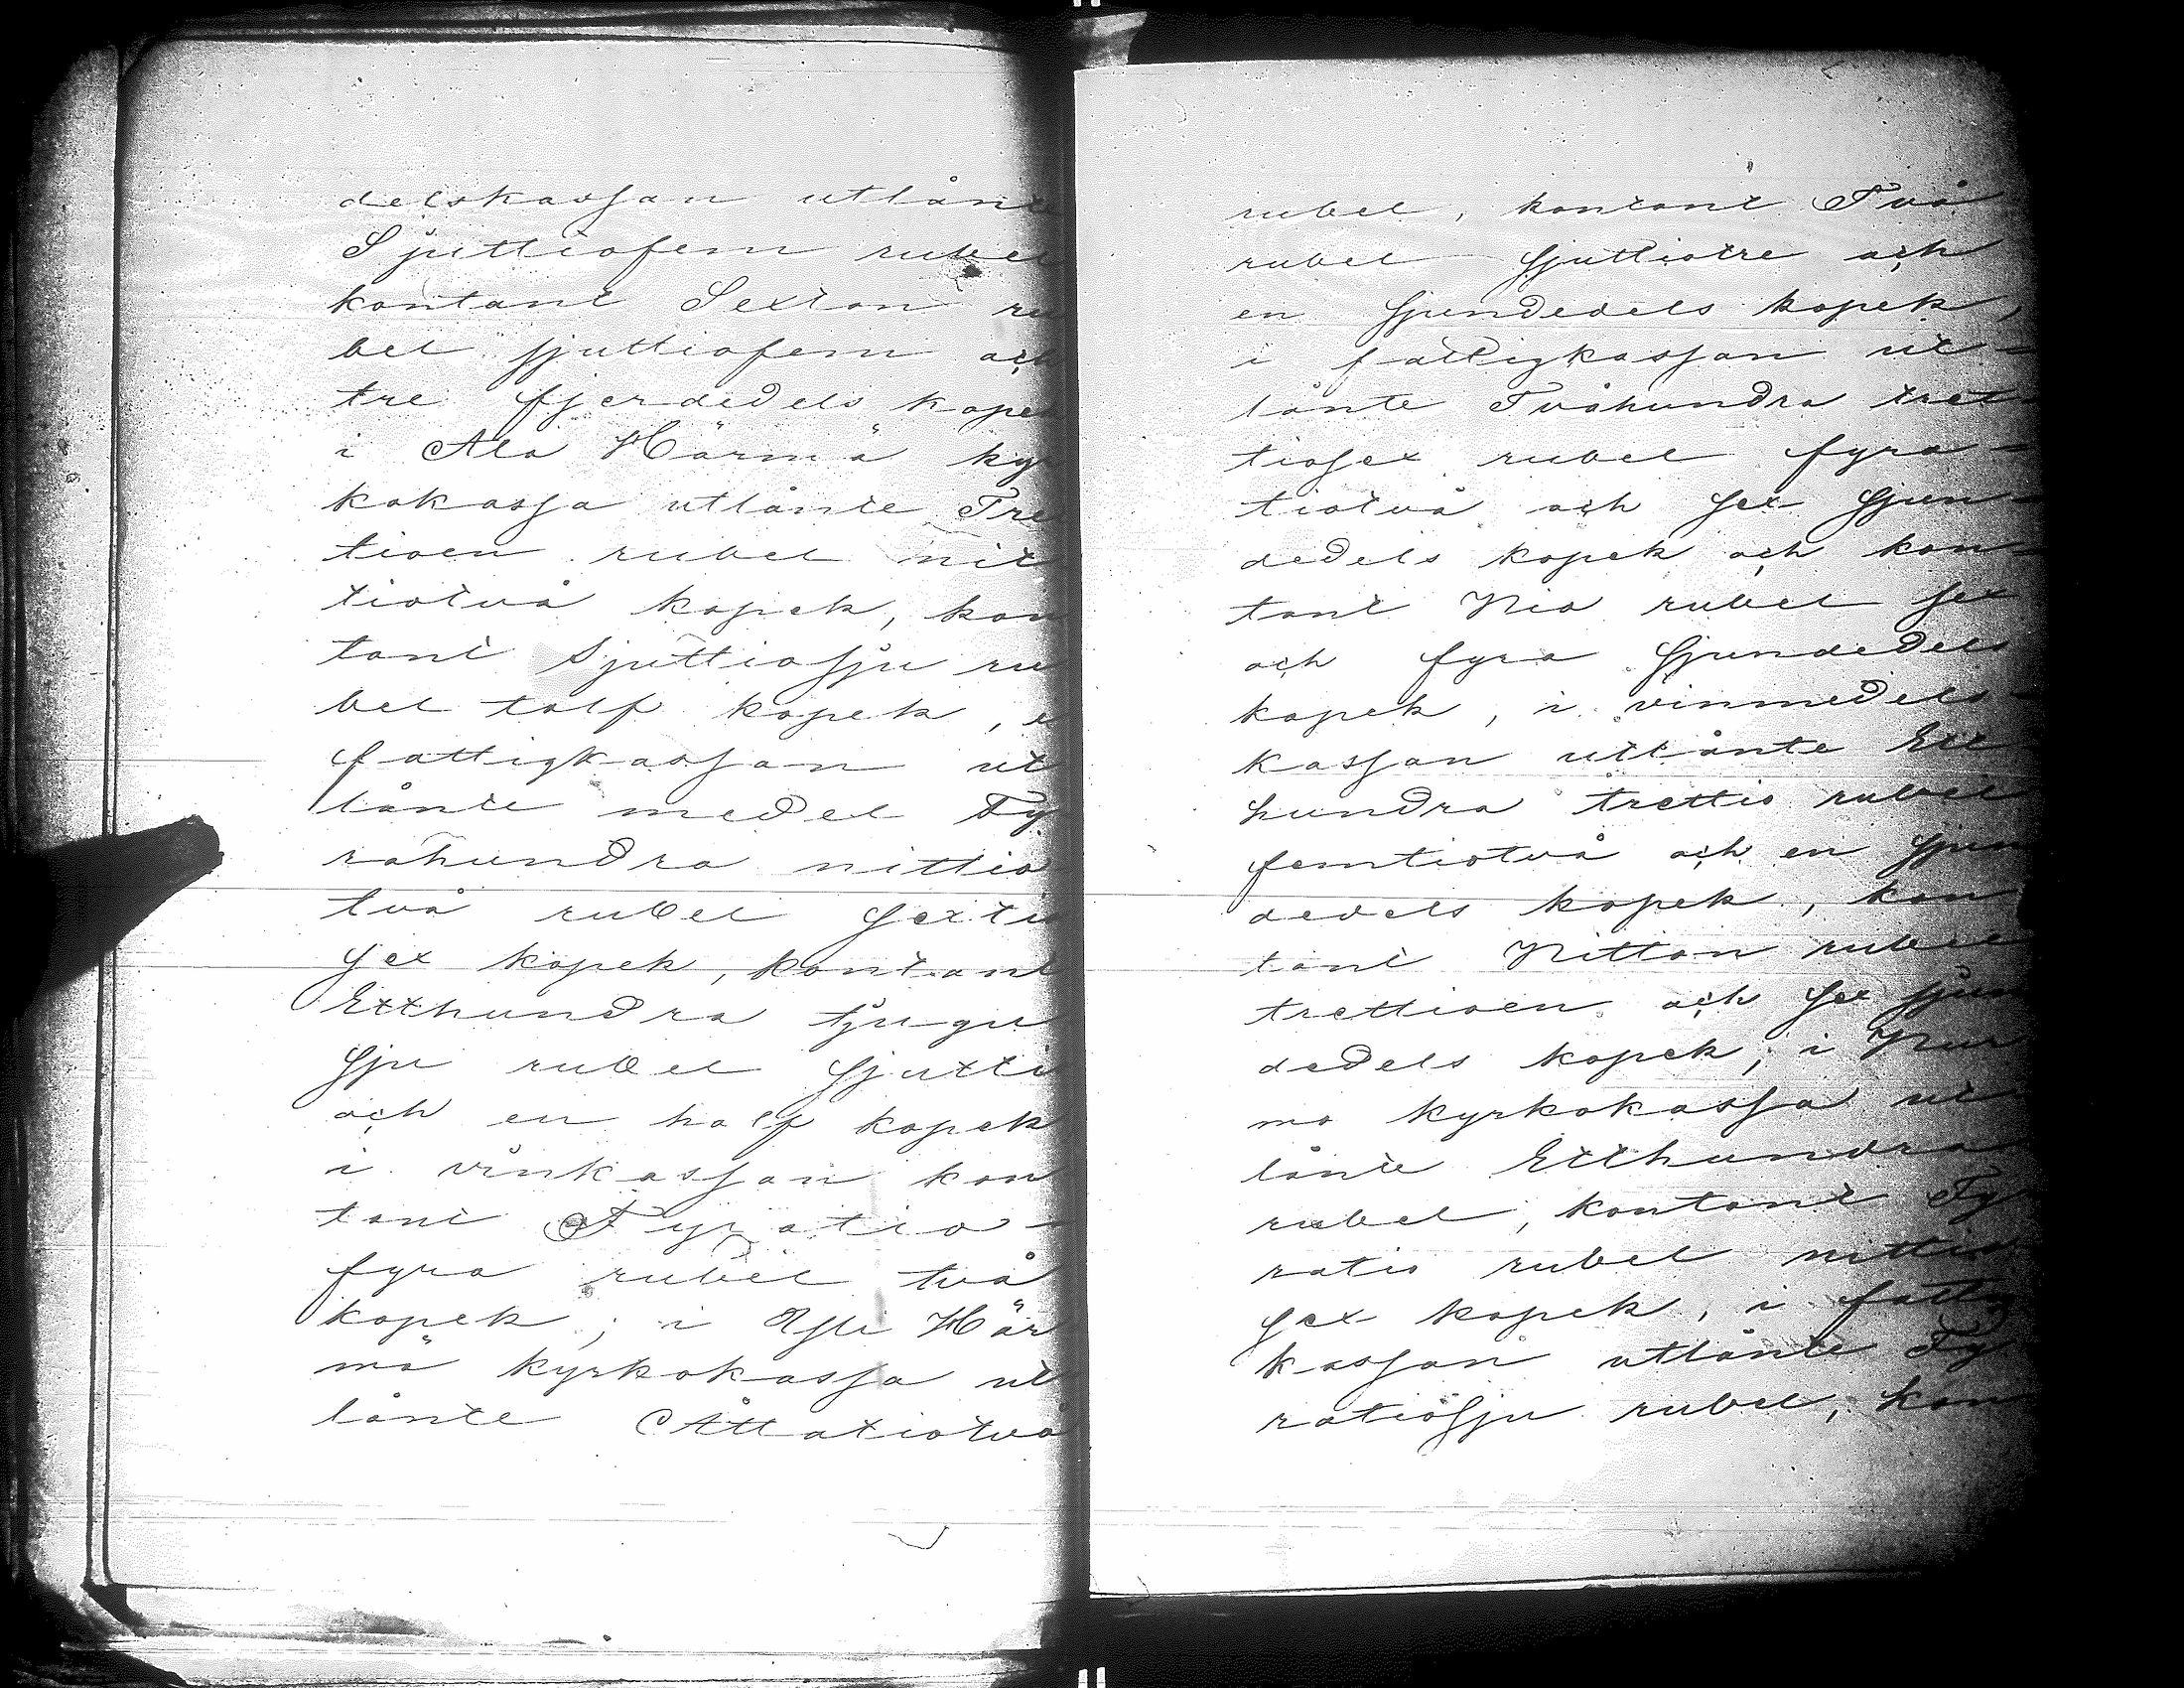 delskassan utlånte
Sjuttiofem rubel
kontant Sexton ru
bel sjuttiofem och
tre fjerdedels kopek
i Ala Härmä kyr
kokassa utlånte Tret
tioen rubel nit
tiotvå kopek, kon
tant Sjuttiosju ru
bel tolf kopek, i
fattigkassan ut
lånte medel Fy
rahundra nittio
två rubel sextio
sex kopek, kontant
Etthundra tjugu
sju rubel sjuttio
och en half kopek
i vinkassan kon
tant Fyratio-
fyra rubel två
kopek; i Ylli Här
mä kyrkokassa ut
lånte Åttatiotvå
rubel, kontant Två
rubel sjuttiotre och
en sjundedels kopek,
i fattigkassan ut-
lånte Tvåhundra tret-
tiosex rubel fyra-
tiotvå och sex sjun-
dedels kopek och kon-
tant Nio rubel sex
och fyra sjundedels
kopek, i vinmedels-
kassan utlånte Ett
hundra trettio rubel
femtiotvå och en sjun
dedels kopek, kon
tant Nitton rubel
trettioen och sex sjun
dedels kopek; i Nur
mo kyrkokassa ut
lånte Etthundra
rubel, kontant Fy
ratio rubel nittio
sex kopek, i fattig
kassan utlånte Fy
ratiosju rubel, kon